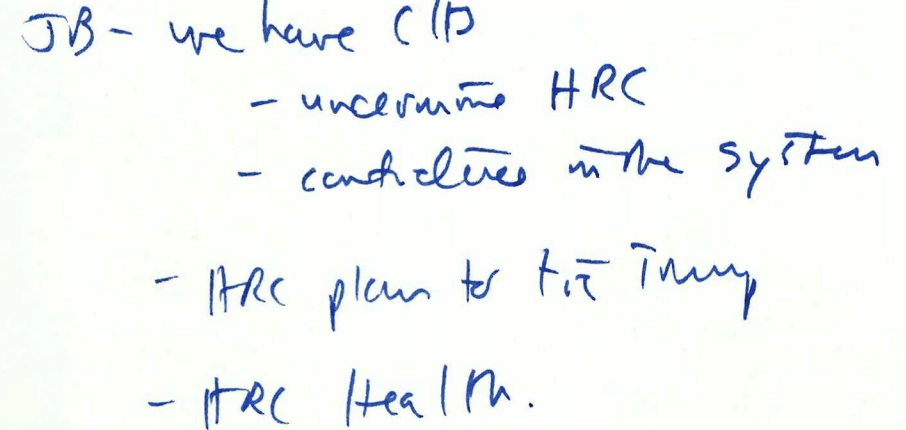 JB - we have CIA
- undermine HRC
- confidence in the system
- HRC plan to tie Trump
- HRC Health.